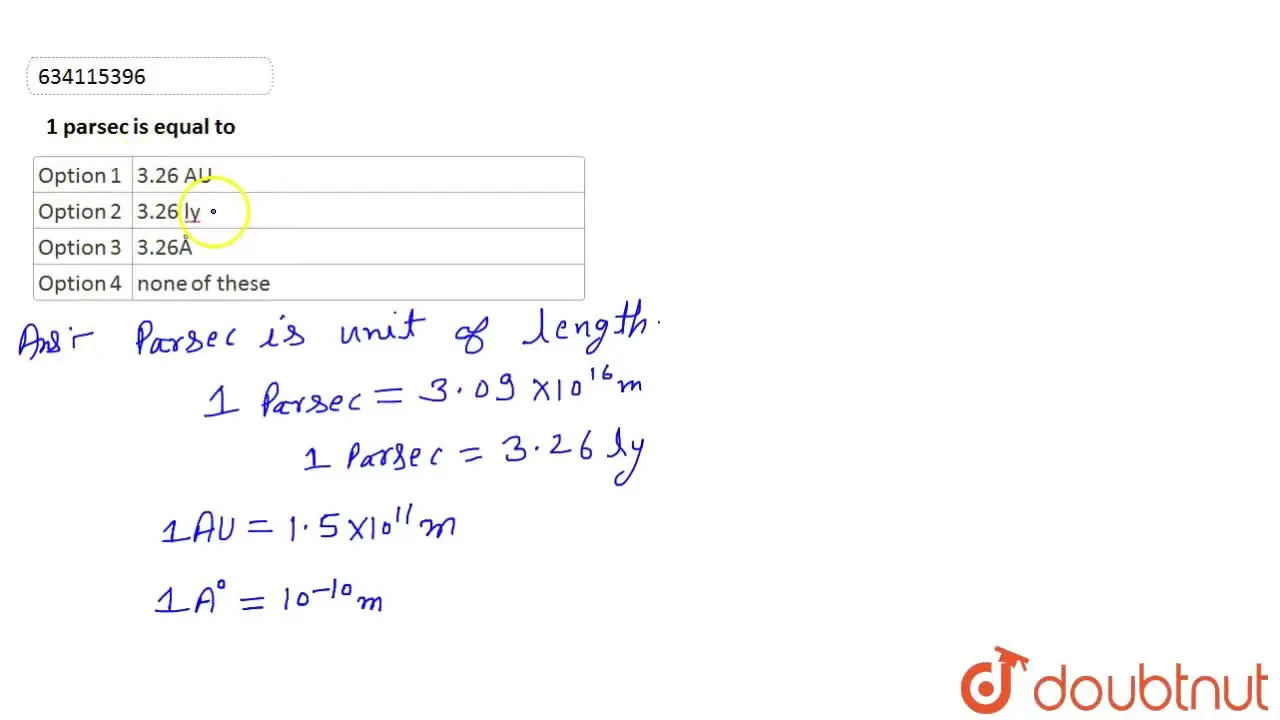 634115396
1 parsec is equal to
Option 1 3.26 AU
Option 2 3.26 ly
Option 3 3.26Å
Option 4 none of these
Ans:- Parsec is unit of length.
1 Parsec = 3.09 × 10¹⁶ m
1 Parsec = 3.26 ly
1 AU = 1.5 × 10¹¹ m
1 A° = 10⁻¹⁰ m
doubtnut